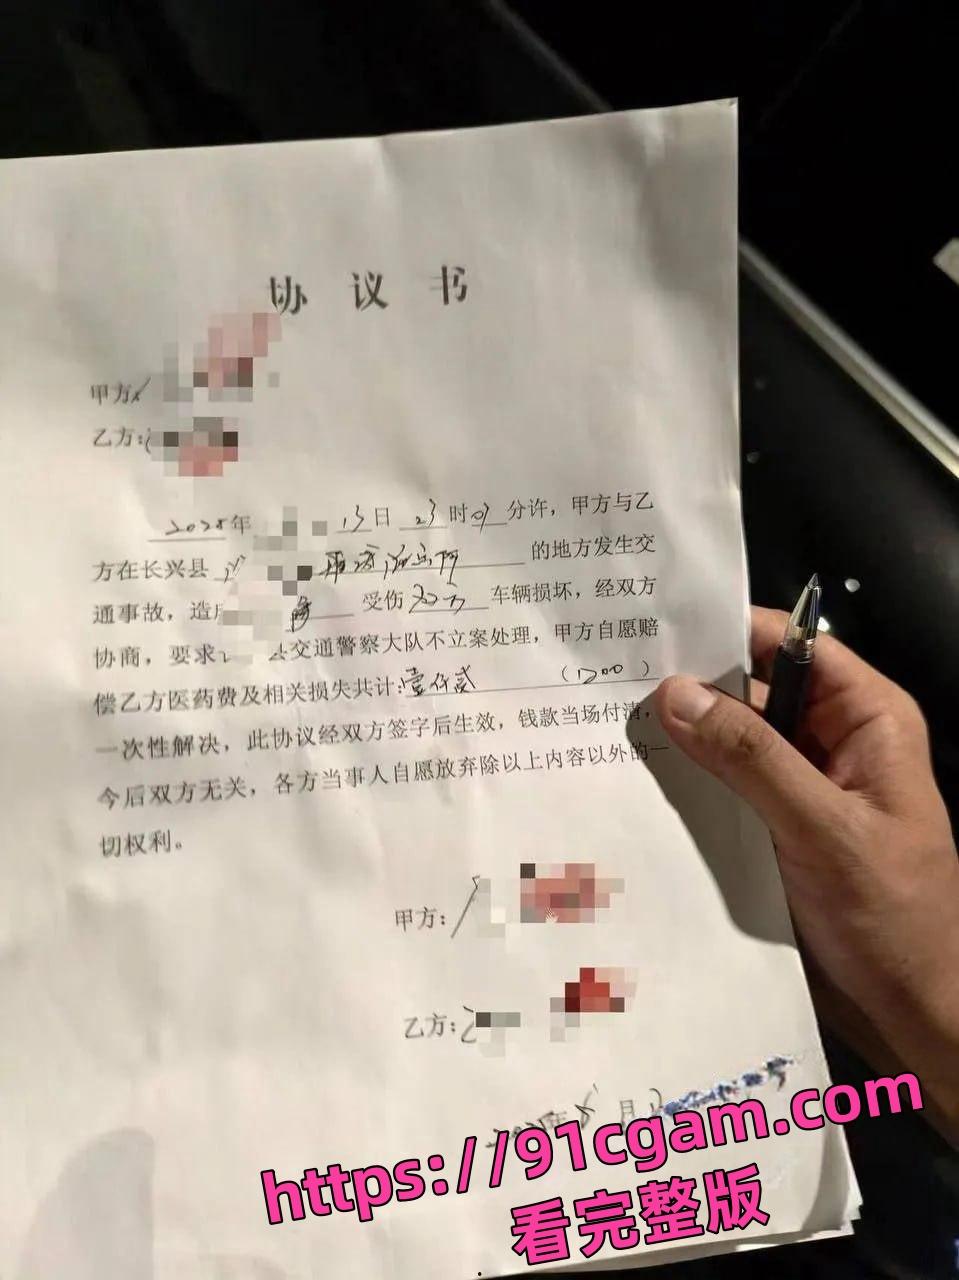 协 议 书
甲方
乙方:
2025年 13日 23时 分许，甲方与乙
方在长兴县 的地方发生交
通事故，造 受伤 双方 车辆损坏，经双方
协商，要求 县交通警察大队不立案处理，甲方自愿赔
偿乙方医药费及相关损失共计:壹仟贰 (1200)
一次性解决，此协议经双方签字后生效，钱款当场付清，
今后双方无关，各方当事人自愿放弃除以上内容以外的一
切权利。
甲方:
乙方:
2025年 月
https://91cgam.com
看完整版